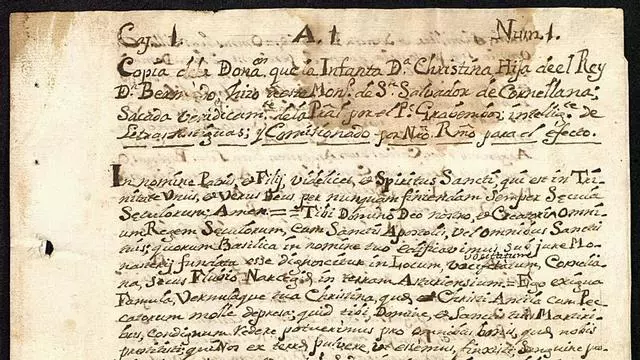 Cax. 1 A. 1 Num. 1.
Copia de la Donaⁿ. que la Infanta Dª. Christina Hija de el Rey
Dⁿ. Bermudo, hizo a este Monº. de Sⁿ. Salvador de Cornellana;
Sacada veridicamᵗᵉ. de la por el Pᵉ. intelligᵗᵉ. de
Letras Antiguas; y Comissionado por Nrõ Rmõ para el efecto.
In nomine Patris, et Filij, videlicet, et Spiritus Sancti, qui est in Tri-
nitate Unus, et Verus Deus per nunquam finiendam Semper Secula
Seculorum. Amen== Tibi Domino Deo nostro, et Creatori Omnium
Regem Seculorum, cum Sanctis Apostoli, vel omnibus Sancti
tuis; quorum Basilica in nomine tuo edificavimus, sub jure Mo-
nasterij fundata esse disponitur in Locum, vocitatum, Cornelia-
na, secus Flubio Narceyæ in terram Asturiensium = Ego exigua
Famula, Vernulaque tua Christina, quæ et Christi Ancila cum Pec-
catorum mole depresa; quid tibi, Domine, et Sanctis tui Martiri-
bus, condignum Vedere potuerimus pro omnibus bonis, quæ nobis
prestitisti; qui Nos ex terre pulvere, in essemus, finxisti Sanguine